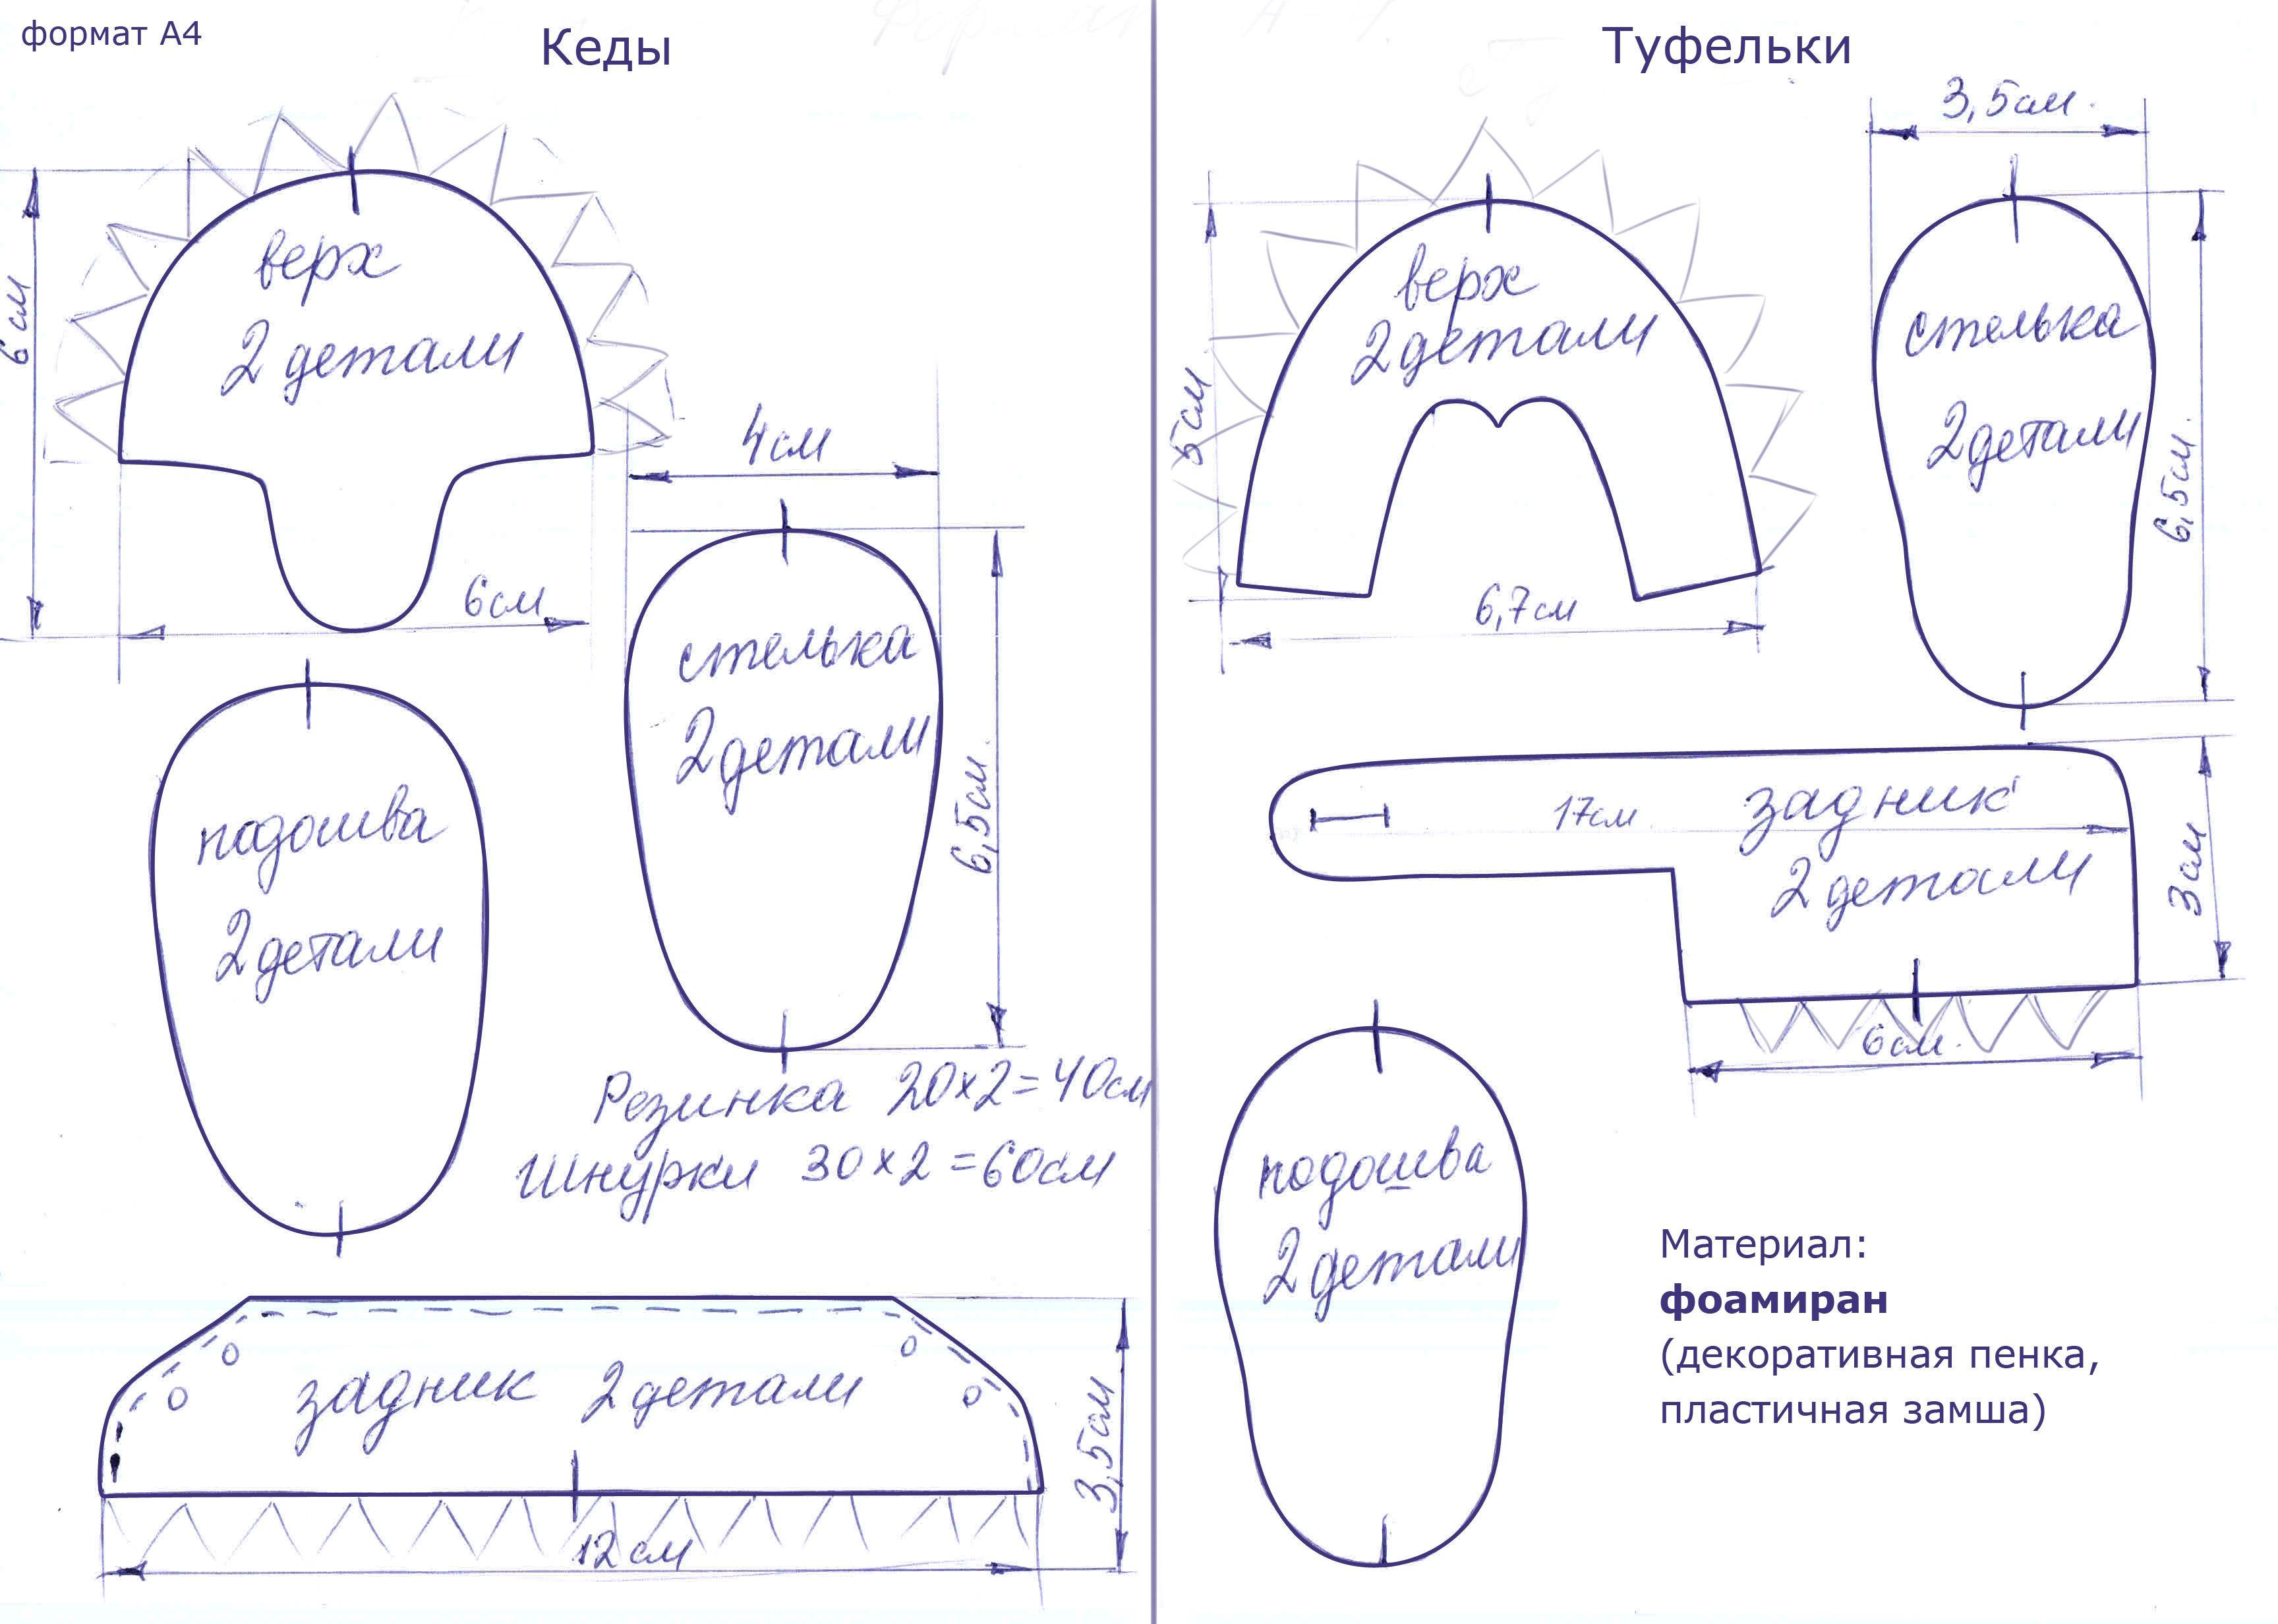 формат А4
Кеды
верх
2 детали
6 см
6 см
4 см
стелька
2 детали
6,5 см.
подошва
2 детали
Резинка 20×2=40см
Шнурки 30×2=60см
задник 2 детали
3,5 см
12 см
Туфельки
3,5 см.
верх
2 детали
5 см.
6,7 см
стелька
2 детали
6,5 см.
17 см.
задник
2 детали
3 см
6 см.
подошва
2 детали
Материал:
фоамиран
(декоративная пенка,
пластичная замша)